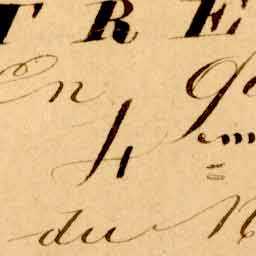 TRE
En
4 em
du